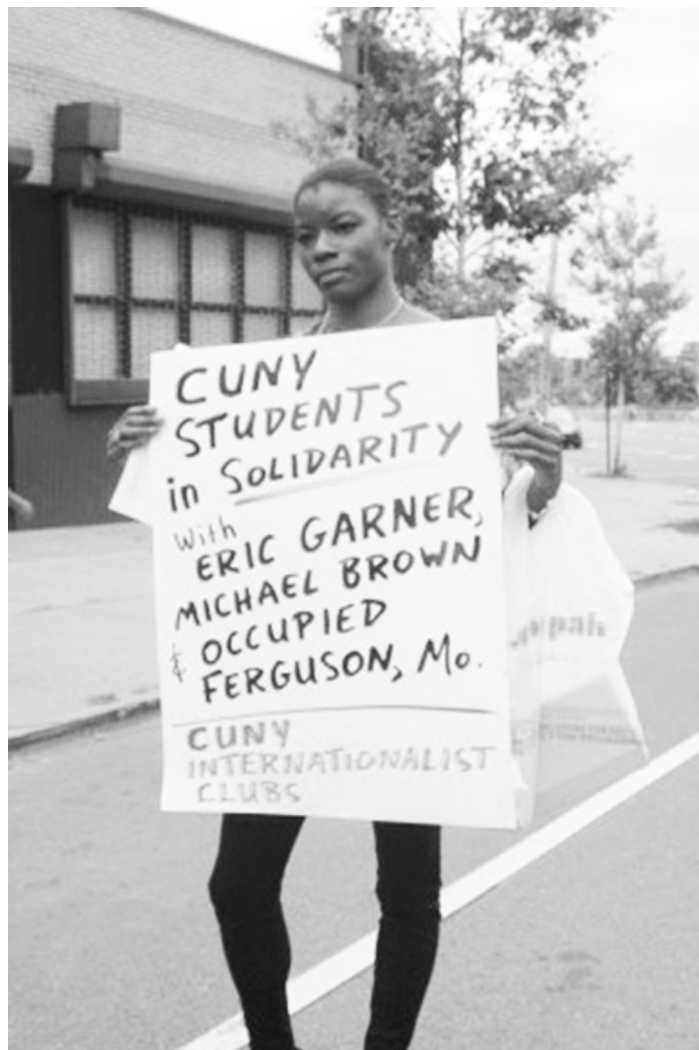 CUNY
STUDENTS
in SOLIDARITY
With
ERIC GARNER,
MICHAEL BROWN
& OCCUPIED
FERGUSON, Mo.
CUNY
INTERNATIONALIST
CLUBS